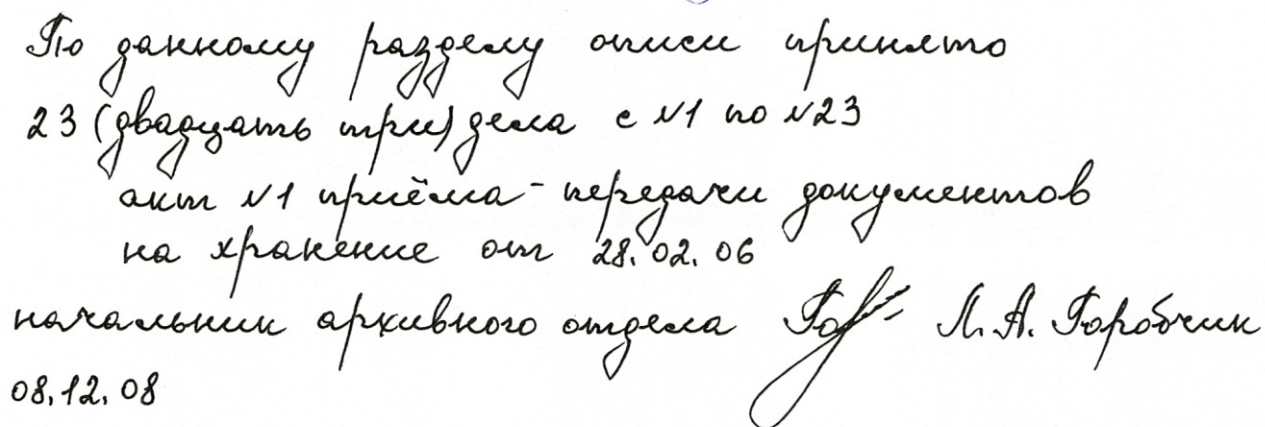 По данному разделу описи принято
23 (двадцать три) дела с №1 по №23
акт №1 приёма-передачи документов
на хранение от 28.02.06
начальник архивного отдела Л.А. Горобчик
08.12.08